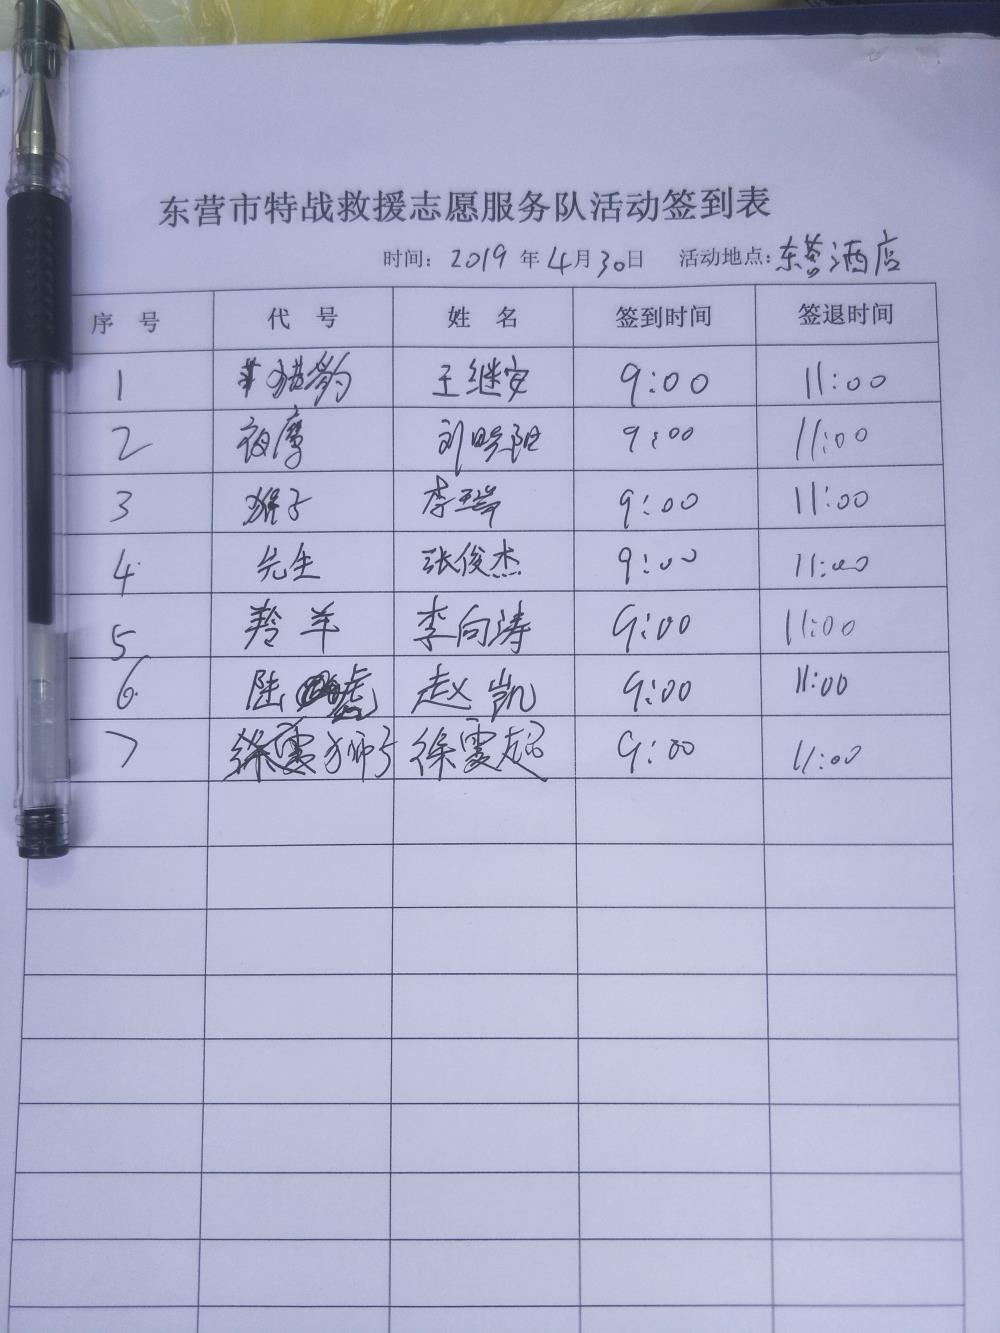 东营市特战救援志愿服务队活动签到表
时间：2019年4月30日 活动地点：东营酒店
序号 代号 姓名 签到时间 签退时间
1 猎豹 王继安 9:00 11:00
2 夜鹰 刘晓阳 9:00 11:00
3 猴子 李瑞 9:00 11:00
4 先生 张俊杰 9:00 11:00
5 羚羊 李向涛 9:00 11:00
6 陆虎 赵凯 9:00 11:00
7 狮子 徐震超 9:00 11:00